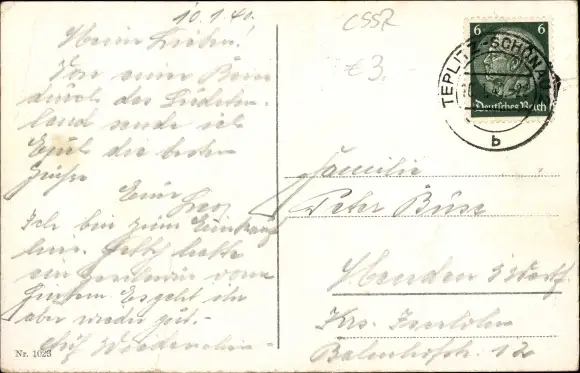 10.1.40.
Meine Lieben!
Von einer Reise
durch das Sudeten-
land sende ich
Euch die besten
Grüße
Euer
Ich bin zum Einkauf
hier. hatte
ein vom
Es geht ihr
aber wieder gut.
Auf Wiedersehen
Nr. 1023
CSSR
£3.
6 6
Deutsches Reich
TEPLITZ-SCHÖNAU
b
Familie
Peter Büss
Menden i/Westf.
Krs. Iserlohn
Bahnhofstr. 12